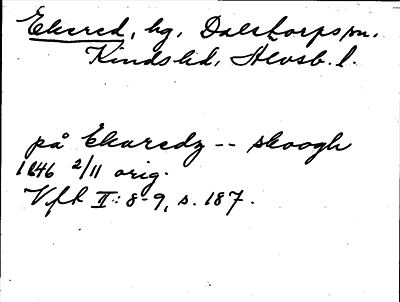 Ekered, hg, Dalstorps sn.
Kinds hd, Älvsb. l.
på Ekaredz -- skoogh
1646 2/11 orig.
Vft II: 8-9, s. 187.